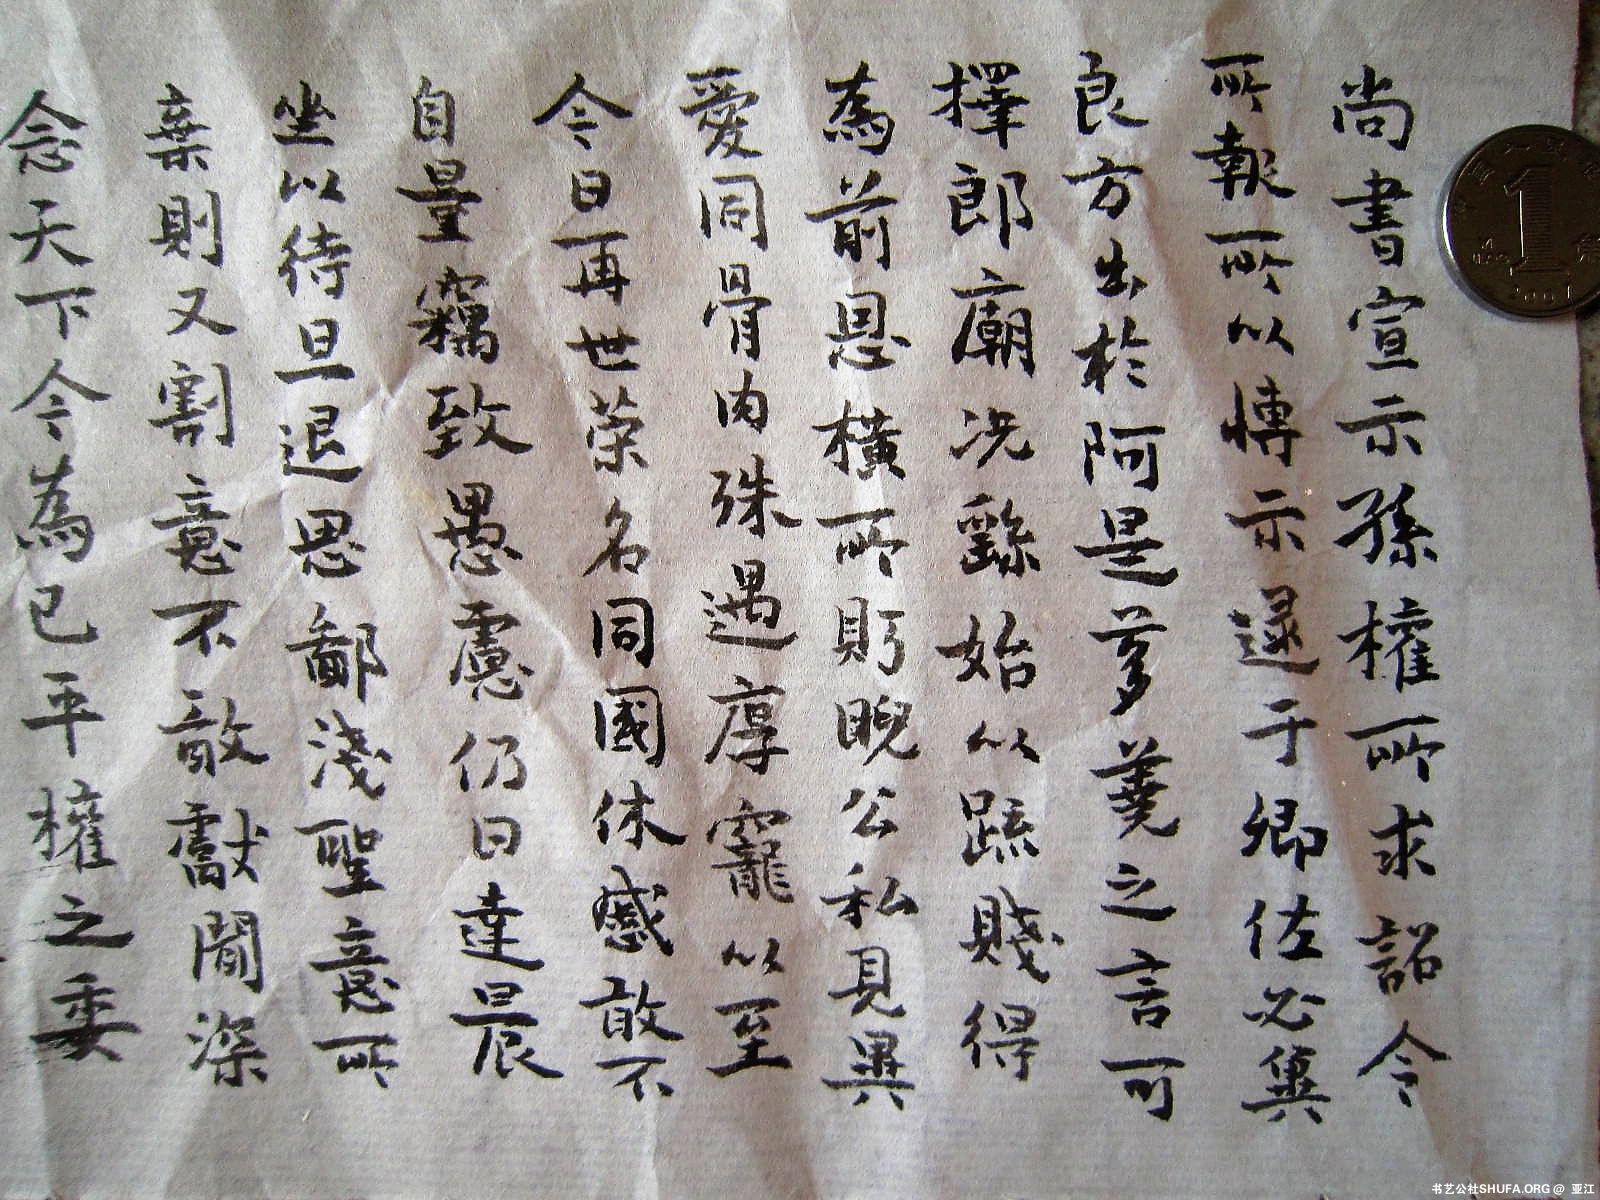 尚書宣示孫權所求詔令
所報所以博示逮于卿佐必冀
良方出於阿是芻蕘之言可
擇郎廟況繇始以疏賤得
為前恩橫所眄睨公私見異
愛同骨肉殊遇厚寵以至
今日再世榮名同國休慼敢不
自量竊致愚慮仍日達晨
坐以待旦退思鄙淺聖意所
棄則又割意不敢獻聞深
念天下今為已平權之委
1
2001
书艺公社SHUFA.ORG @ 亚江